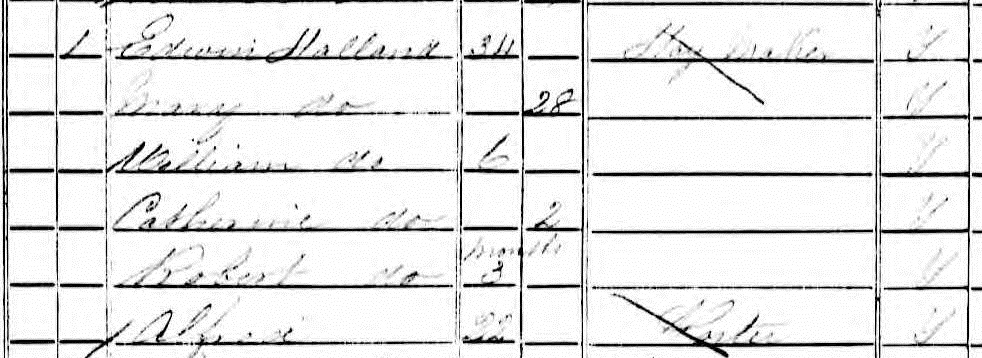 1 Edwin Halland 34 Stay Maker Y
Mary do 28 Y
William do 6 Y
Catherine do 2 Y
Robert do months 3 Y
Alfred 22 Porter Y